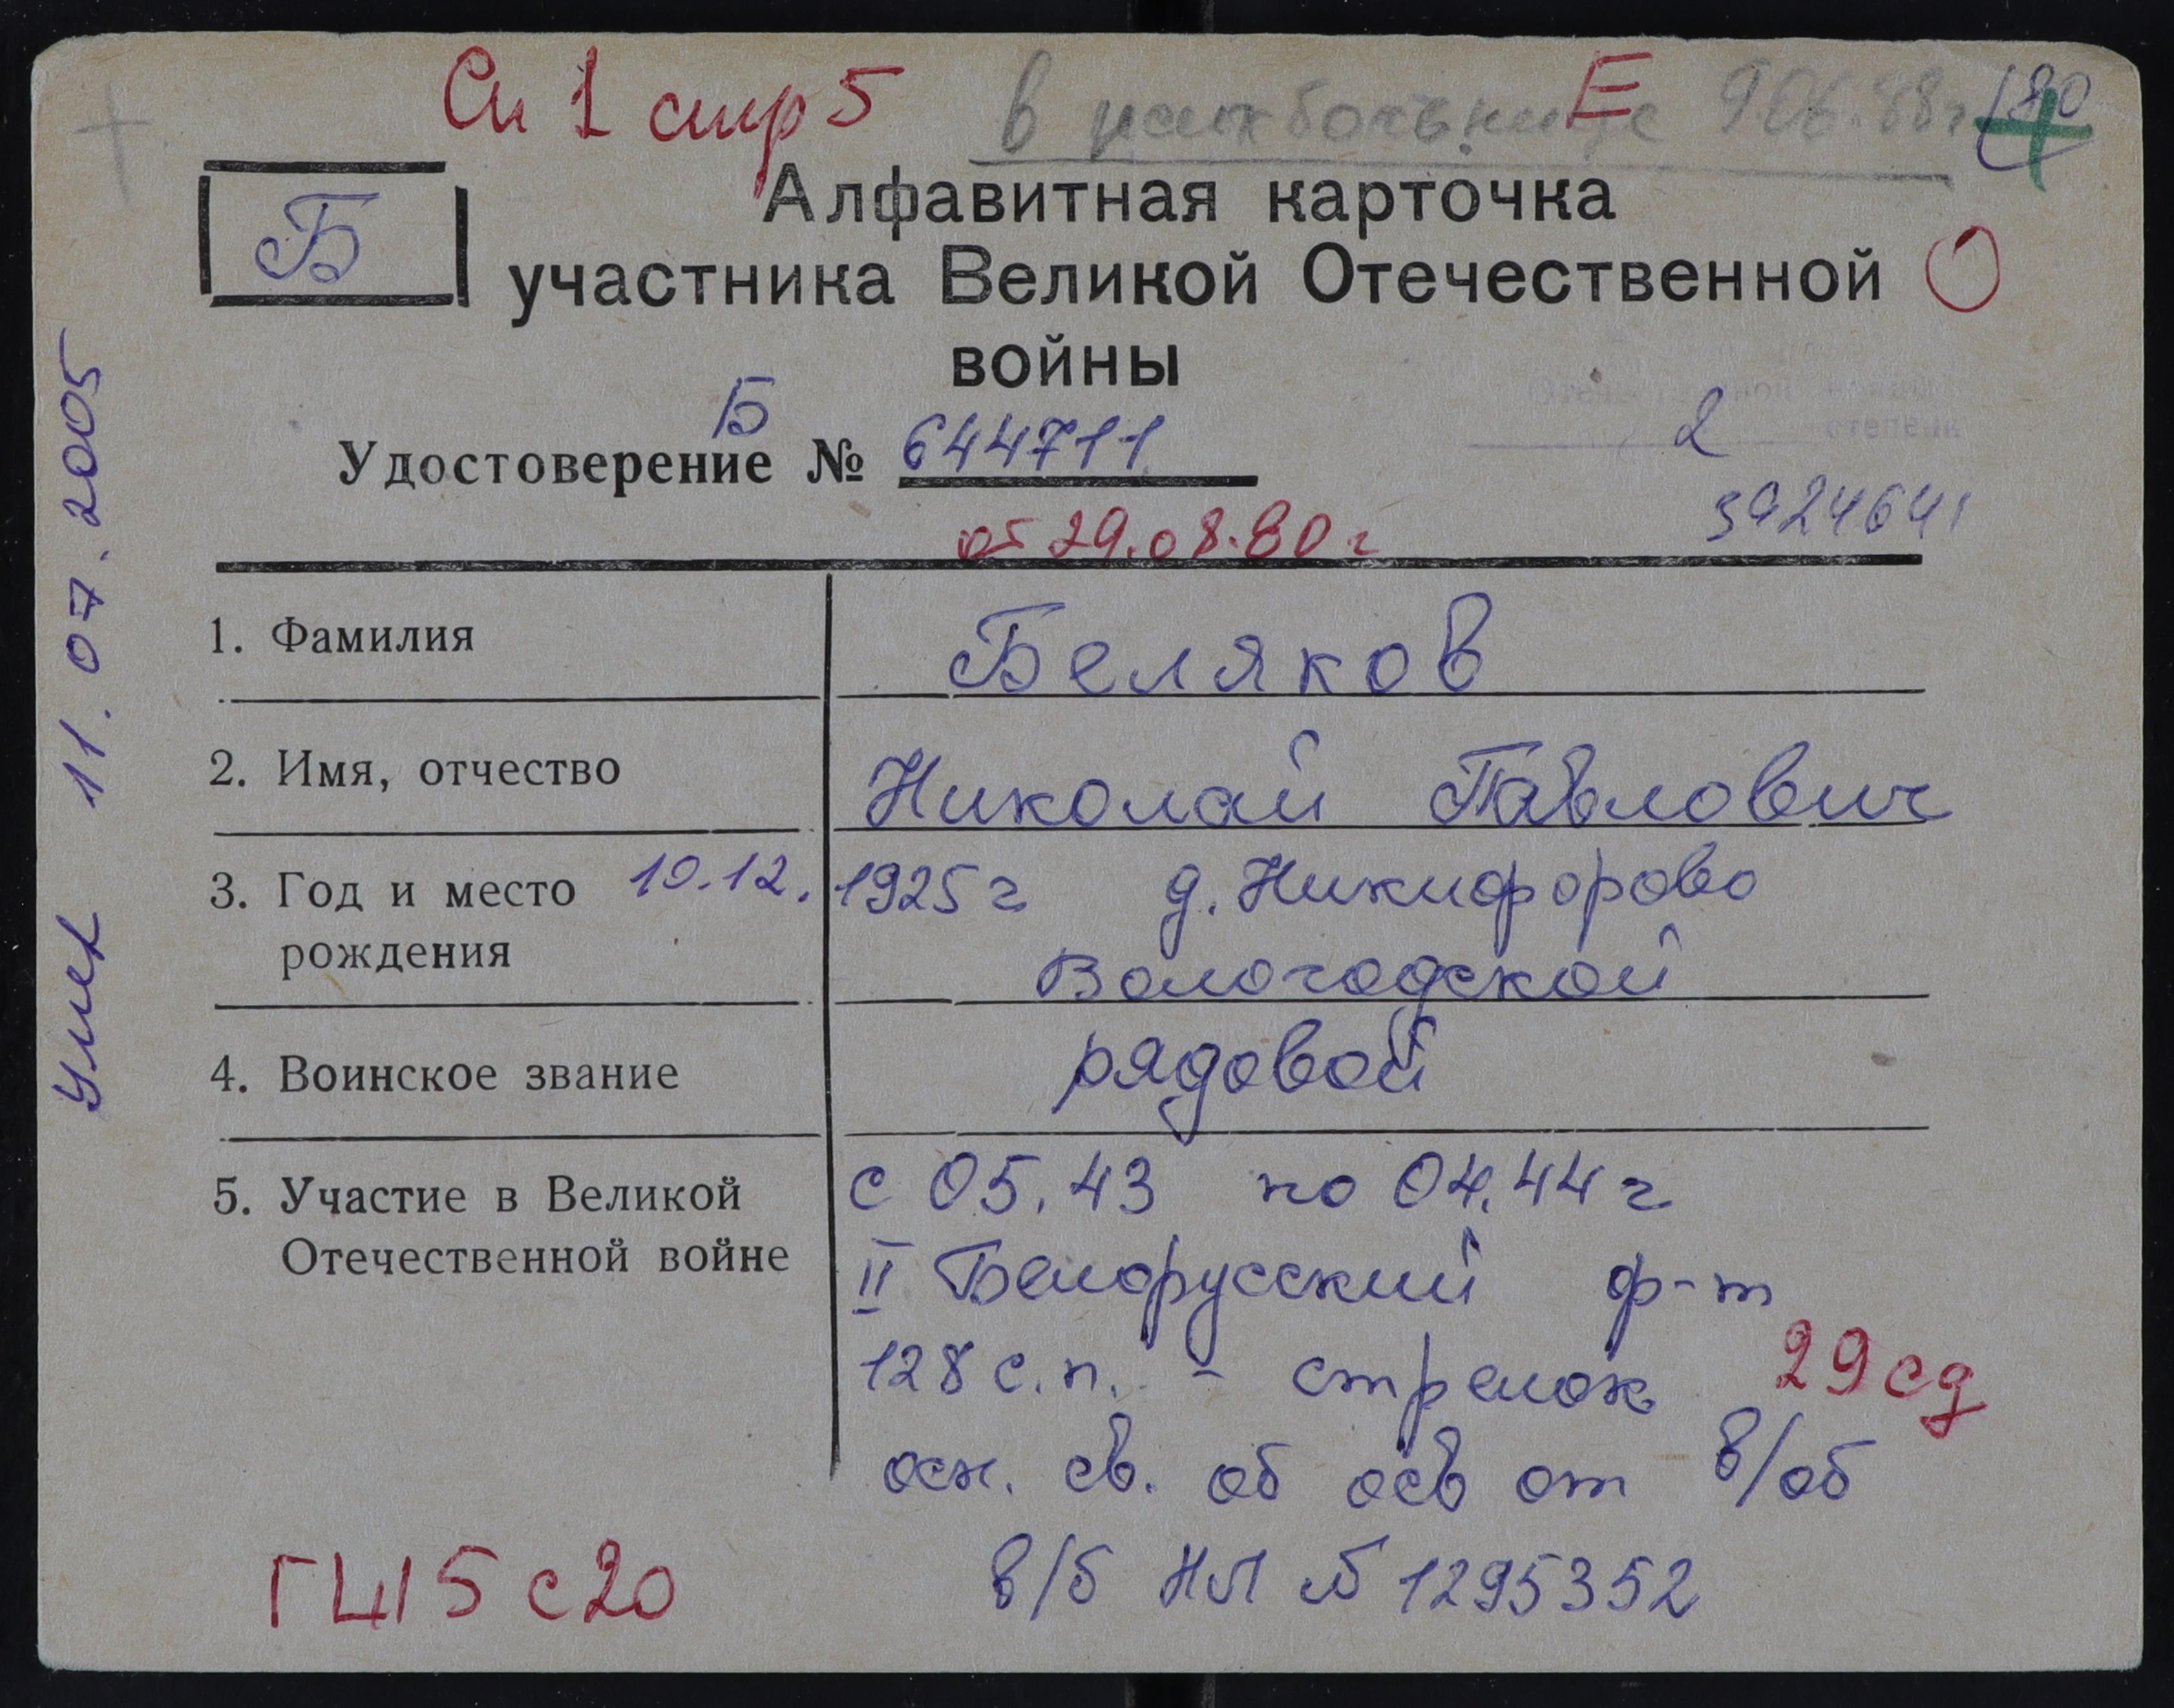 Сп 1 стр 5
Е
в психбольнице 9.06.88г
180
Б
Алфавитная карточка
участника Великой Отечественной
войны
Б
Удостоверение № 644711
от 29.08.80 г
2
степени
3924641
1. Фамилия Беляков
2. Имя, отчество Николай Павлович
3. Год и место 10.12. 1925 г д. Никифорово
рождения Вологодской
4. Воинское звание рядовой
5. Участие в Великой с 05.43 по 04.44 г
Отечественной войне II Белорусский ф-т
128 с.п. - стрелок 29 сд
осн. св. об осв от в/об
в/б НЛ № 1295352
ГЦ15 с20
Умер 11.07.2005